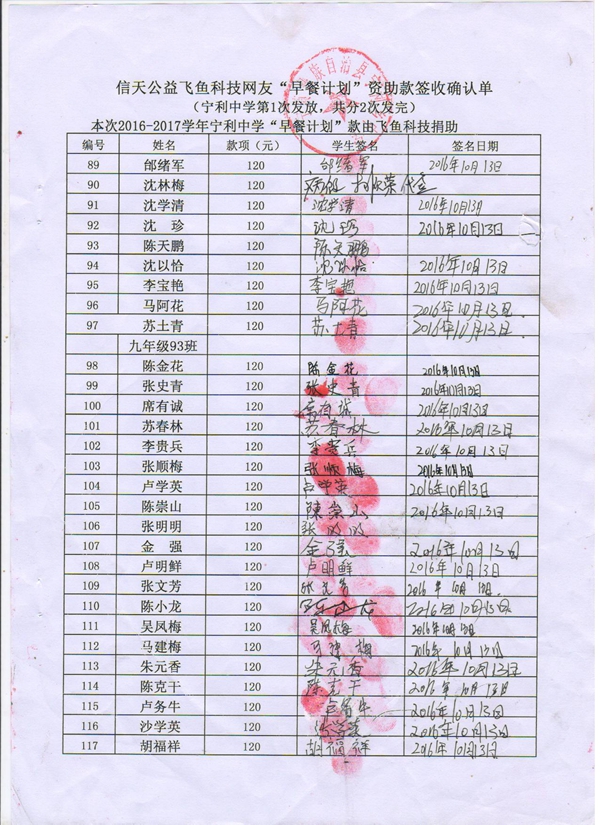 信天公益飞鱼科技网友“早餐计划”资助款签收确认单
（宁利中学第1次发放，共分2次发完）
本次2016-2017学年宁利中学“早餐计划”款由飞鱼科技捐助
编号 姓名 款项（元） 学生签名 签名日期
89 邰绪军 120 邰绪军 2016年10月13日
90 沈林梅 120 病假 代签
91 沈学清 120 沈学清 2016年10月13日
92 沈 珍 120 沈珍 2016年10月13日
93 陈天鹏 120 陈天鹏
94 沈以恰 120 沈以恰 2016年10月13日
95 李宝艳 120 李宝艳 2016年10月13日
96 马阿花 120 马阿花 2016年10月13日
97 苏土青 120 苏土青 2016年10月13日
九年级93班
98 陈金花 120 陈金花 2016年10月13日
99 张史青 120 张史青 2016年10月13日
100 席有诚 120 席有诚 2016年10月13日
101 苏春林 120 苏春林 2016年10月13日
102 李贵兵 120 李贵兵 2016年10月13日
103 张顺梅 120 张顺梅 2016年10月13日
104 卢学英 120 卢学英 2016年10月13日
105 陈崇山 120 陳崇山 2016年10月13日
106 张明明 120 张明明
107 金 强 120 金强 2016年10月13日
108 卢明鲜 120 卢明鲜 2016年10月13日
109 张文芳 120 张文芳 2016年10月13日
110 陈小龙 120 陈小龙 2016年10月13日
111 吴凤梅 120 吴凤梅 2016年10月13日
112 马建梅 120 马建梅 2016年10月13日
113 朱元香 120 朱元香 2016年10月13日
114 陈克干 120 陈克干 2016年10月13日
115 卢务牛 120 卢务牛 2016年10月13日
116 沙学英 120 沙学英 2016年10月13日
117 胡福祥 120 胡福祥 2016年10月13日